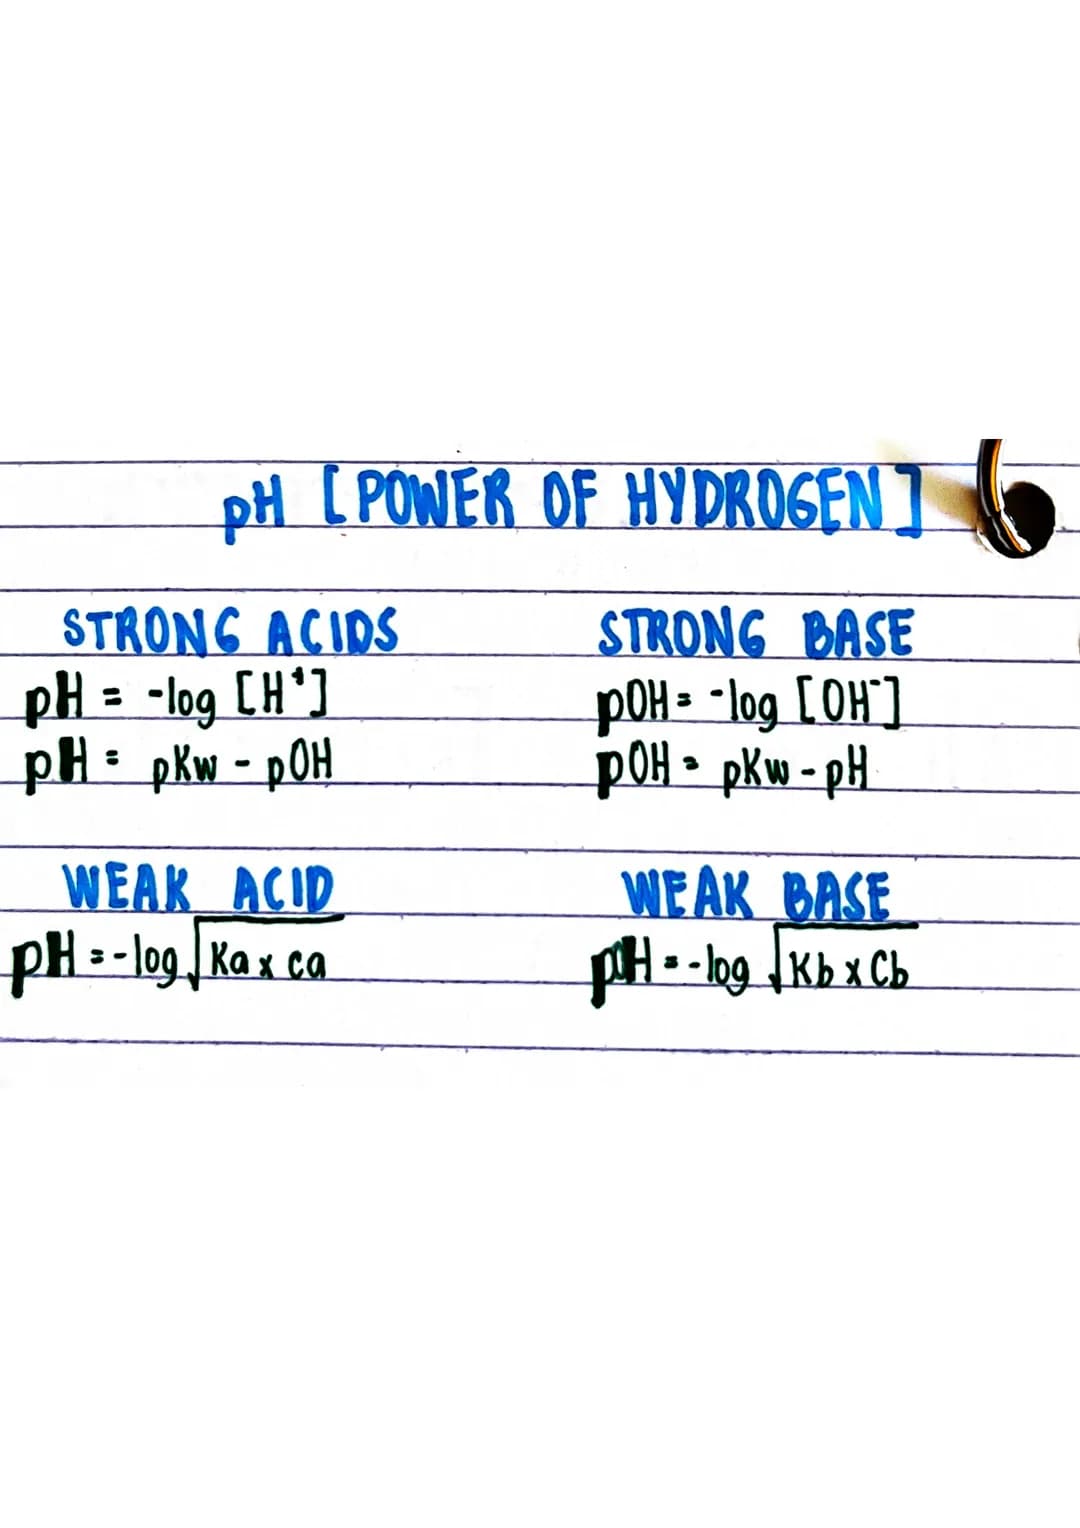 pH [POWER OF HYDROGEN]
STRONG ACIDS
pH = -log [H⁺]
pH = pKw - pOH
STRONG BASE
pOH = -log [OH⁻]
pOH = pKw - pH
WEAK ACID
pH = -log √Ka x ca
WEAK BASE
pOH = -log √Kb x Cb